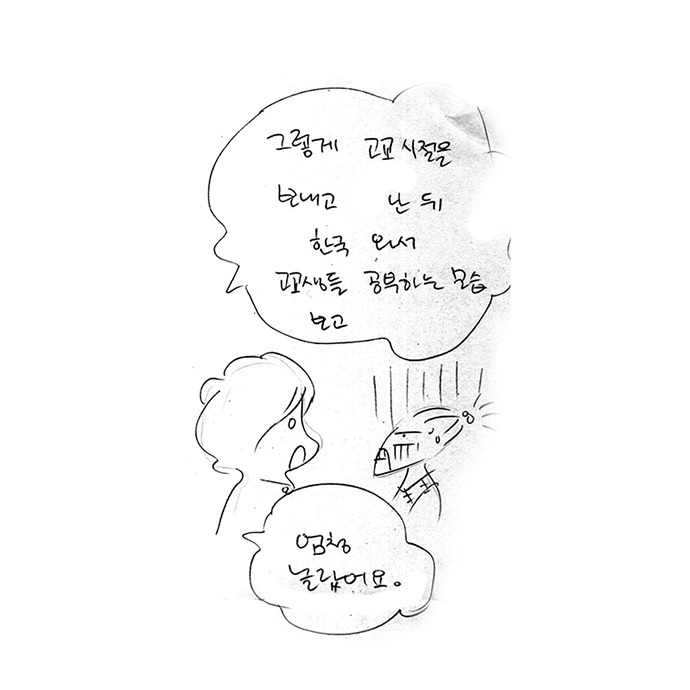 그렇게 고교 시절을
보내고 난 뒤
한국 와서
고교생들 공부하는 모습
보고
엄청
놀랐어요.